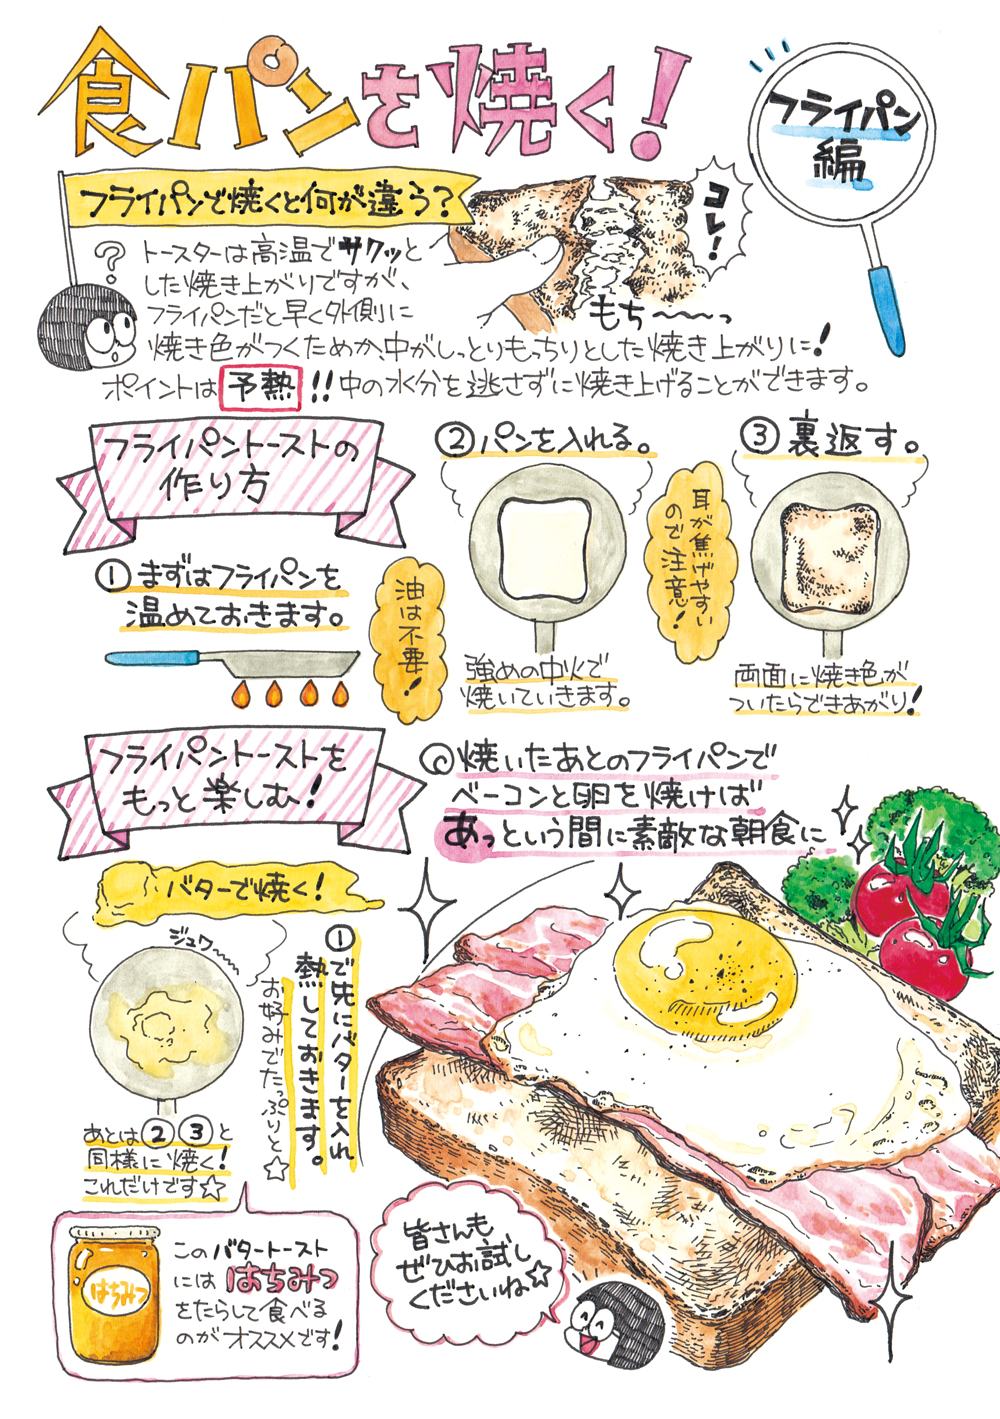 食パンを焼く!
フライパン
編
フライパンで焼くと何が違う?
コレ!
もち〜〜〜っ
?
トースターは高温でサクッと
した焼き上がりですが、
フライパンだと早く外側に
焼き色がつくためか、中がしっとりもっちりとした焼き上がりに!
ポイントは予熱!!中の水分を逃さずに焼き上げることができます。
フライパントーストの
作り方
①まずはフライパンを
温めておきます。
油は不要!
②パンを入れる。
強めの中火で
焼いていきます。
耳が焦げやすい
ので注意!
③裏返す。
両面に焼き色が
ついたらできあがり!
フライパントーストを
もっと楽しむ!
◎焼いたあとのフライパンで
ベーコンと卵を焼けば
あっという間に素敵な朝食に
バターで焼く!
ジュワ〜
①で先にバターを入れ
熱しておきます。
お好みでたっぷりと☆
あとは②③と
同様に焼く!
これだけです☆
はちみつ
このバタートースト
にははちみつ
をたらして食べる
のがオススメです!
皆さんも
ぜひお試し
くださいね☆